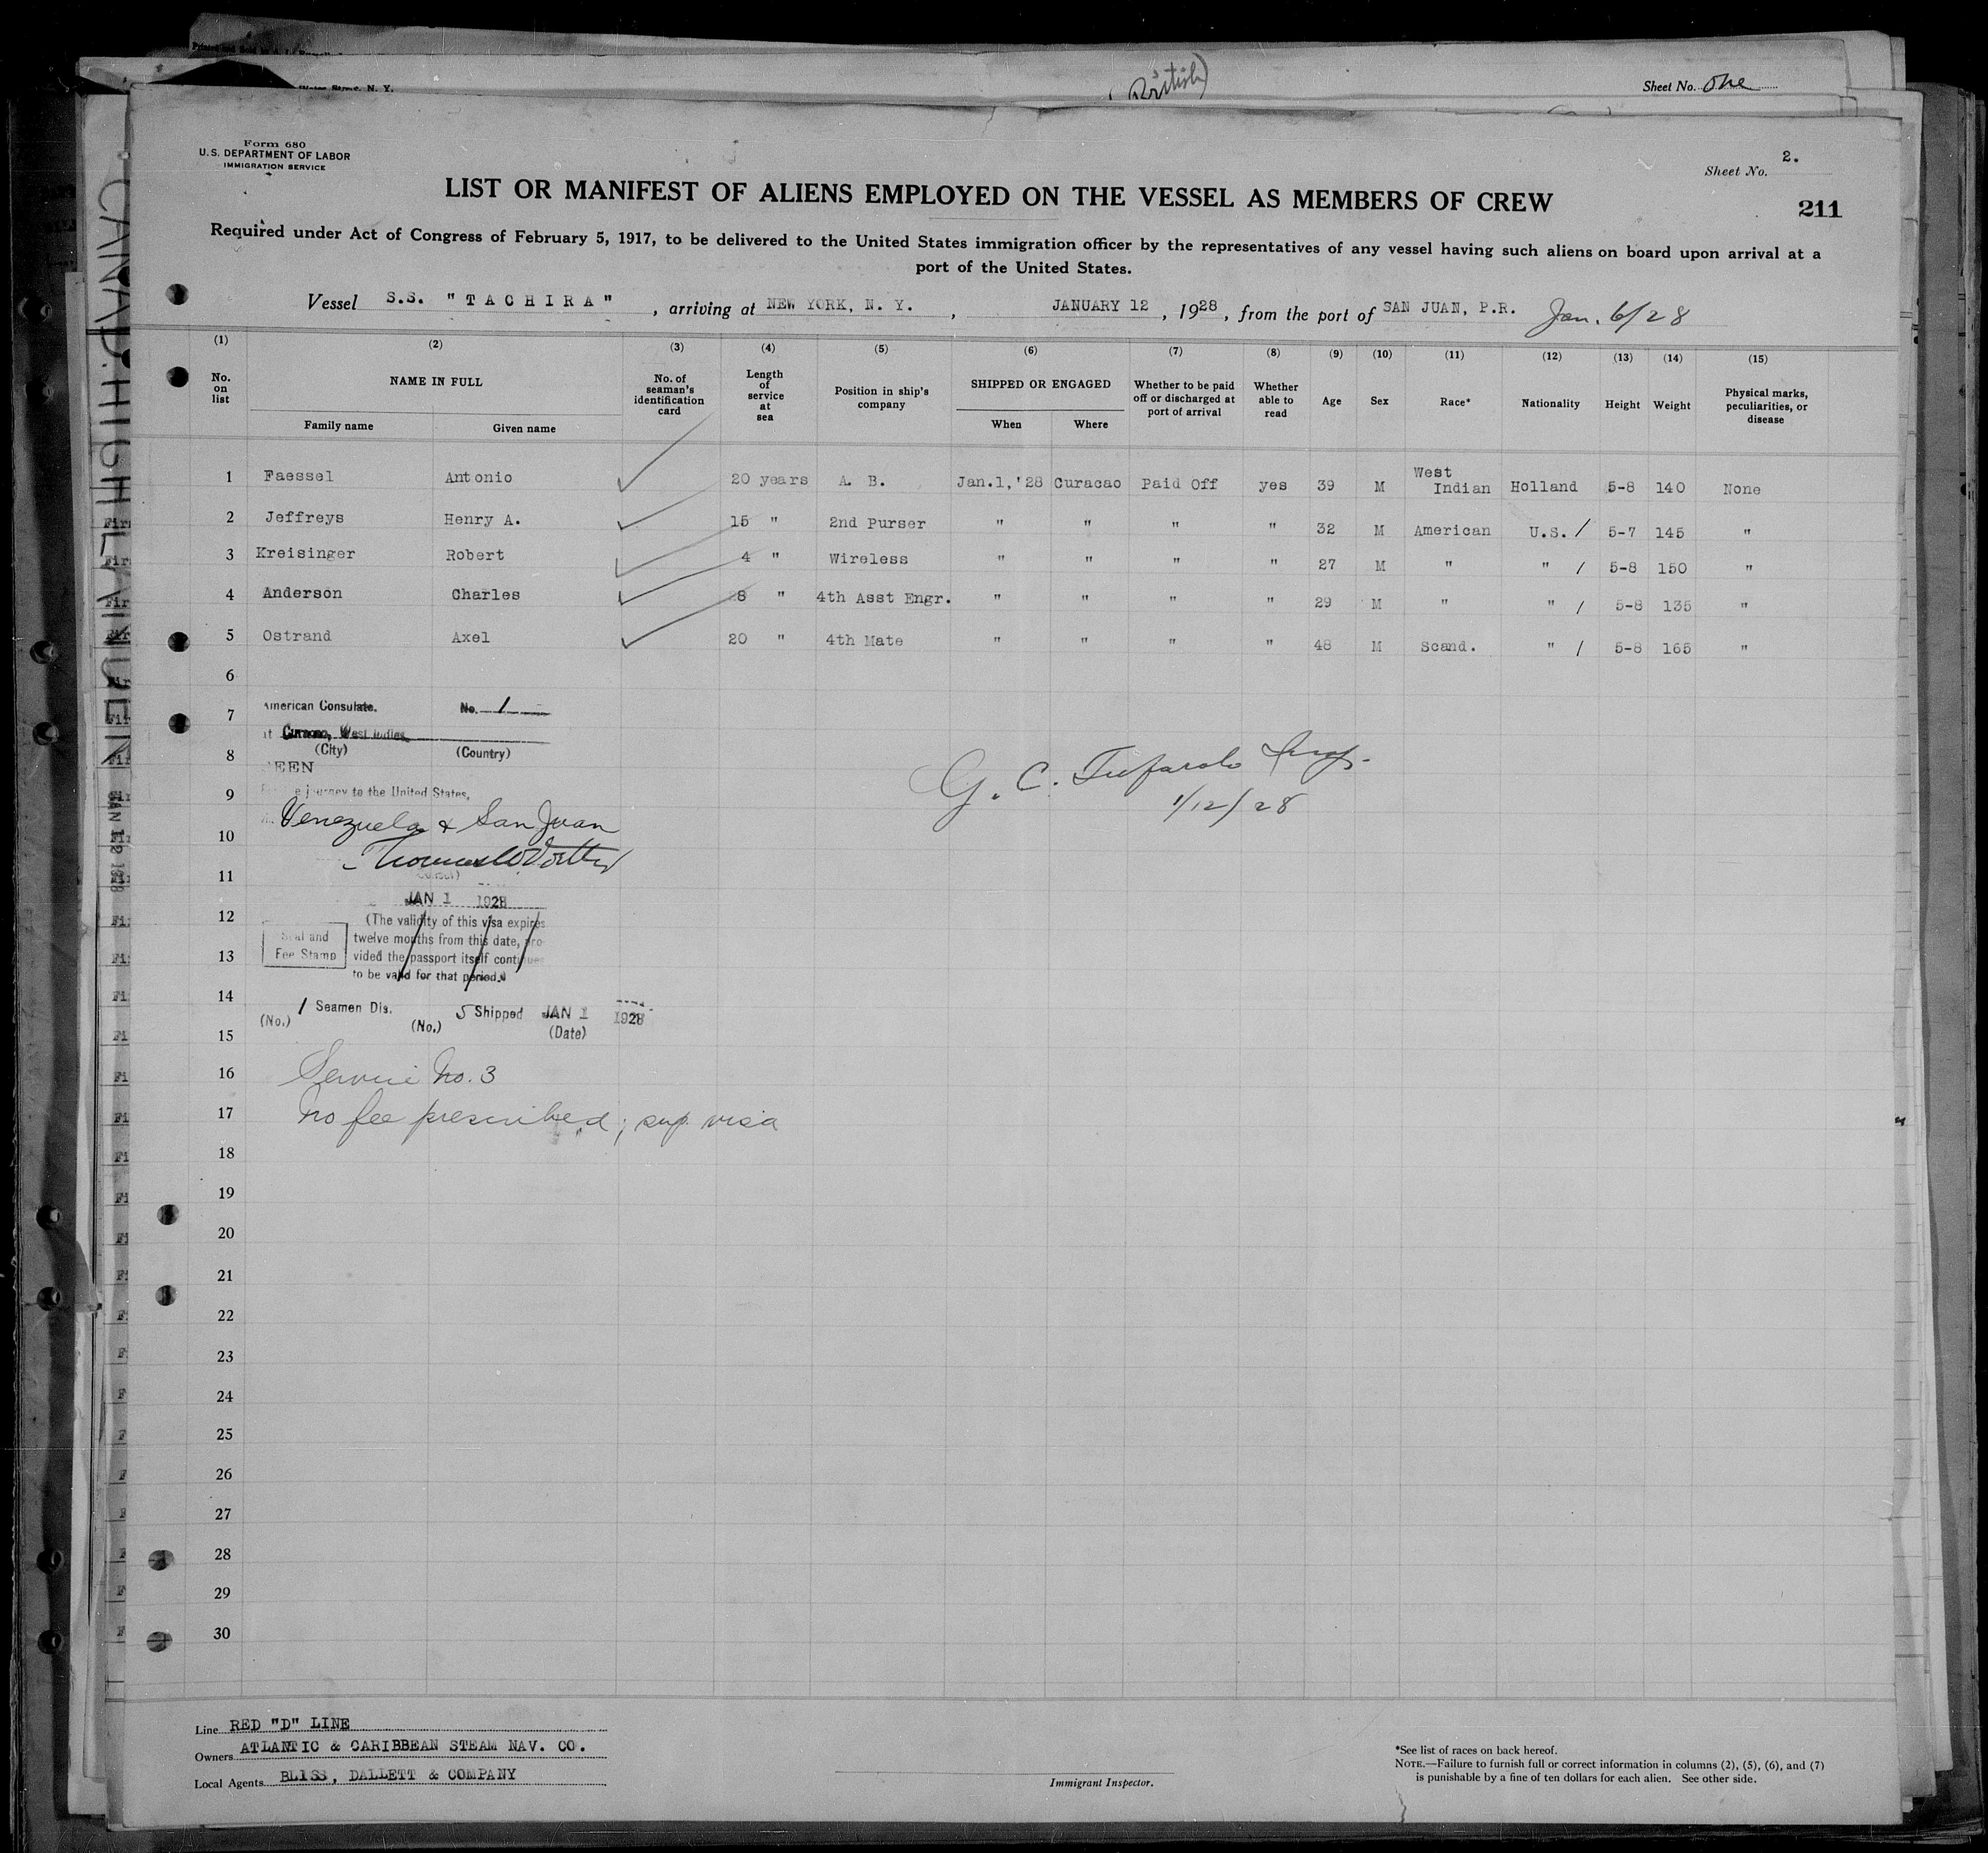 Water Street, N. Y.
(British)
Sheet No. One
Form 680
U.S. DEPARTMENT OF LABOR
IMMIGRATION SERVICE
Sheet No. 2.
211
LIST OR MANIFEST OF ALIENS EMPLOYED ON THE VESSEL AS MEMBERS OF CREW
Required under Act of Congress of February 5, 1917, to be delivered to the United States immigration officer by the representatives of any vessel having such aliens on board upon arrival at a
port of the United States.
Vessel S.S. "TACHIRA", arriving at NEW YORK, N. Y., JANUARY 12, 1928, from the port of SAN JUAN, P.R. Jan. 6/28
(1) (2) (3) (4) (5) (6) (7) (8) (9) (10) (11) (12) (13) (14) (15)
No. on list NAME IN FULL Family name Given name No. of seaman's identification card Length of service at sea Position in ship's company SHIPPED OR ENGAGED When Where Whether to be paid off or discharged at port of arrival Whether able to read Age Sex Race* Nationality Height Weight Physical marks, peculiarities, or disease
1 Faessel Antonio 20 years A. B. Jan.1,'28 Curacao Paid Off yes 39 M West Indian Holland 5-8 140 None
2 Jeffreys Henry A. 15 " 2nd Purser " " " " 32 M American U.S. / 5-7 145 "
3 Kreisinger Robert 4 " Wireless " " " " 27 M " " / 5-8 150 "
4 Anderson Charles 8 " 4th Asst Engr. " " " " 29 M " " / 5-8 135 "
5 Ostrand Axel 20 " 4th Mate " " " " 48 M Scand. " / 5-8 165 "
6
7 American Consulate. No. 1
at Curacao, West Indies
(City) (Country)
8 SEEN
9 journey to the United States,
Venezuela & San Juan
10
11
JAN 1 1928
12 (The validity of this visa expires
Seal and Fee Stamp twelve months from this date, pro-
13 vided the passport itself continues
to be valid for that period.)
14 (No.) 1 Seamen Dis. (No.) 5 Shipped JAN 1 1928 (Date)
15
16 Service No. 3
17 No fee prescribed; sup. visa
18
19
20
21
22
23
24
25
26
27
28
29
30
G. C. Tufarolo Insp.
1/12/28
Line RED "D" LINE
Owners ATLANTIC & CARIBBEAN STEAM NAV. CO.
Local Agents BLISS, DALLETT & COMPANY
Immigrant Inspector.
*See list of races on back hereof.
NOTE.—Failure to furnish full or correct information in columns (2), (5), (6), and (7)
is punishable by a fine of ten dollars for each alien. See other side.
JAN 12 1928